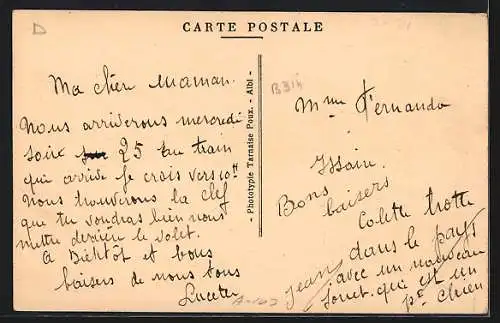 CARTE POSTALE
D
Ma chère maman.
Nous arriverons mercredi
soir 25 au train
qui arrive je crois vers 10 H
Nous trouverons la clef
que tu voudras bien nous
mettre derrière le volet.
A Bientôt et bons
baisers de nous tous
Lucette
- Phototypie Tarnaise Poux. - Albi -
B316
Mme Fernanda
Issain.
Bons
baisers
Colette trotte
dans le pays
avec un nouveau
jouet. qui est un
pt chien
Jean